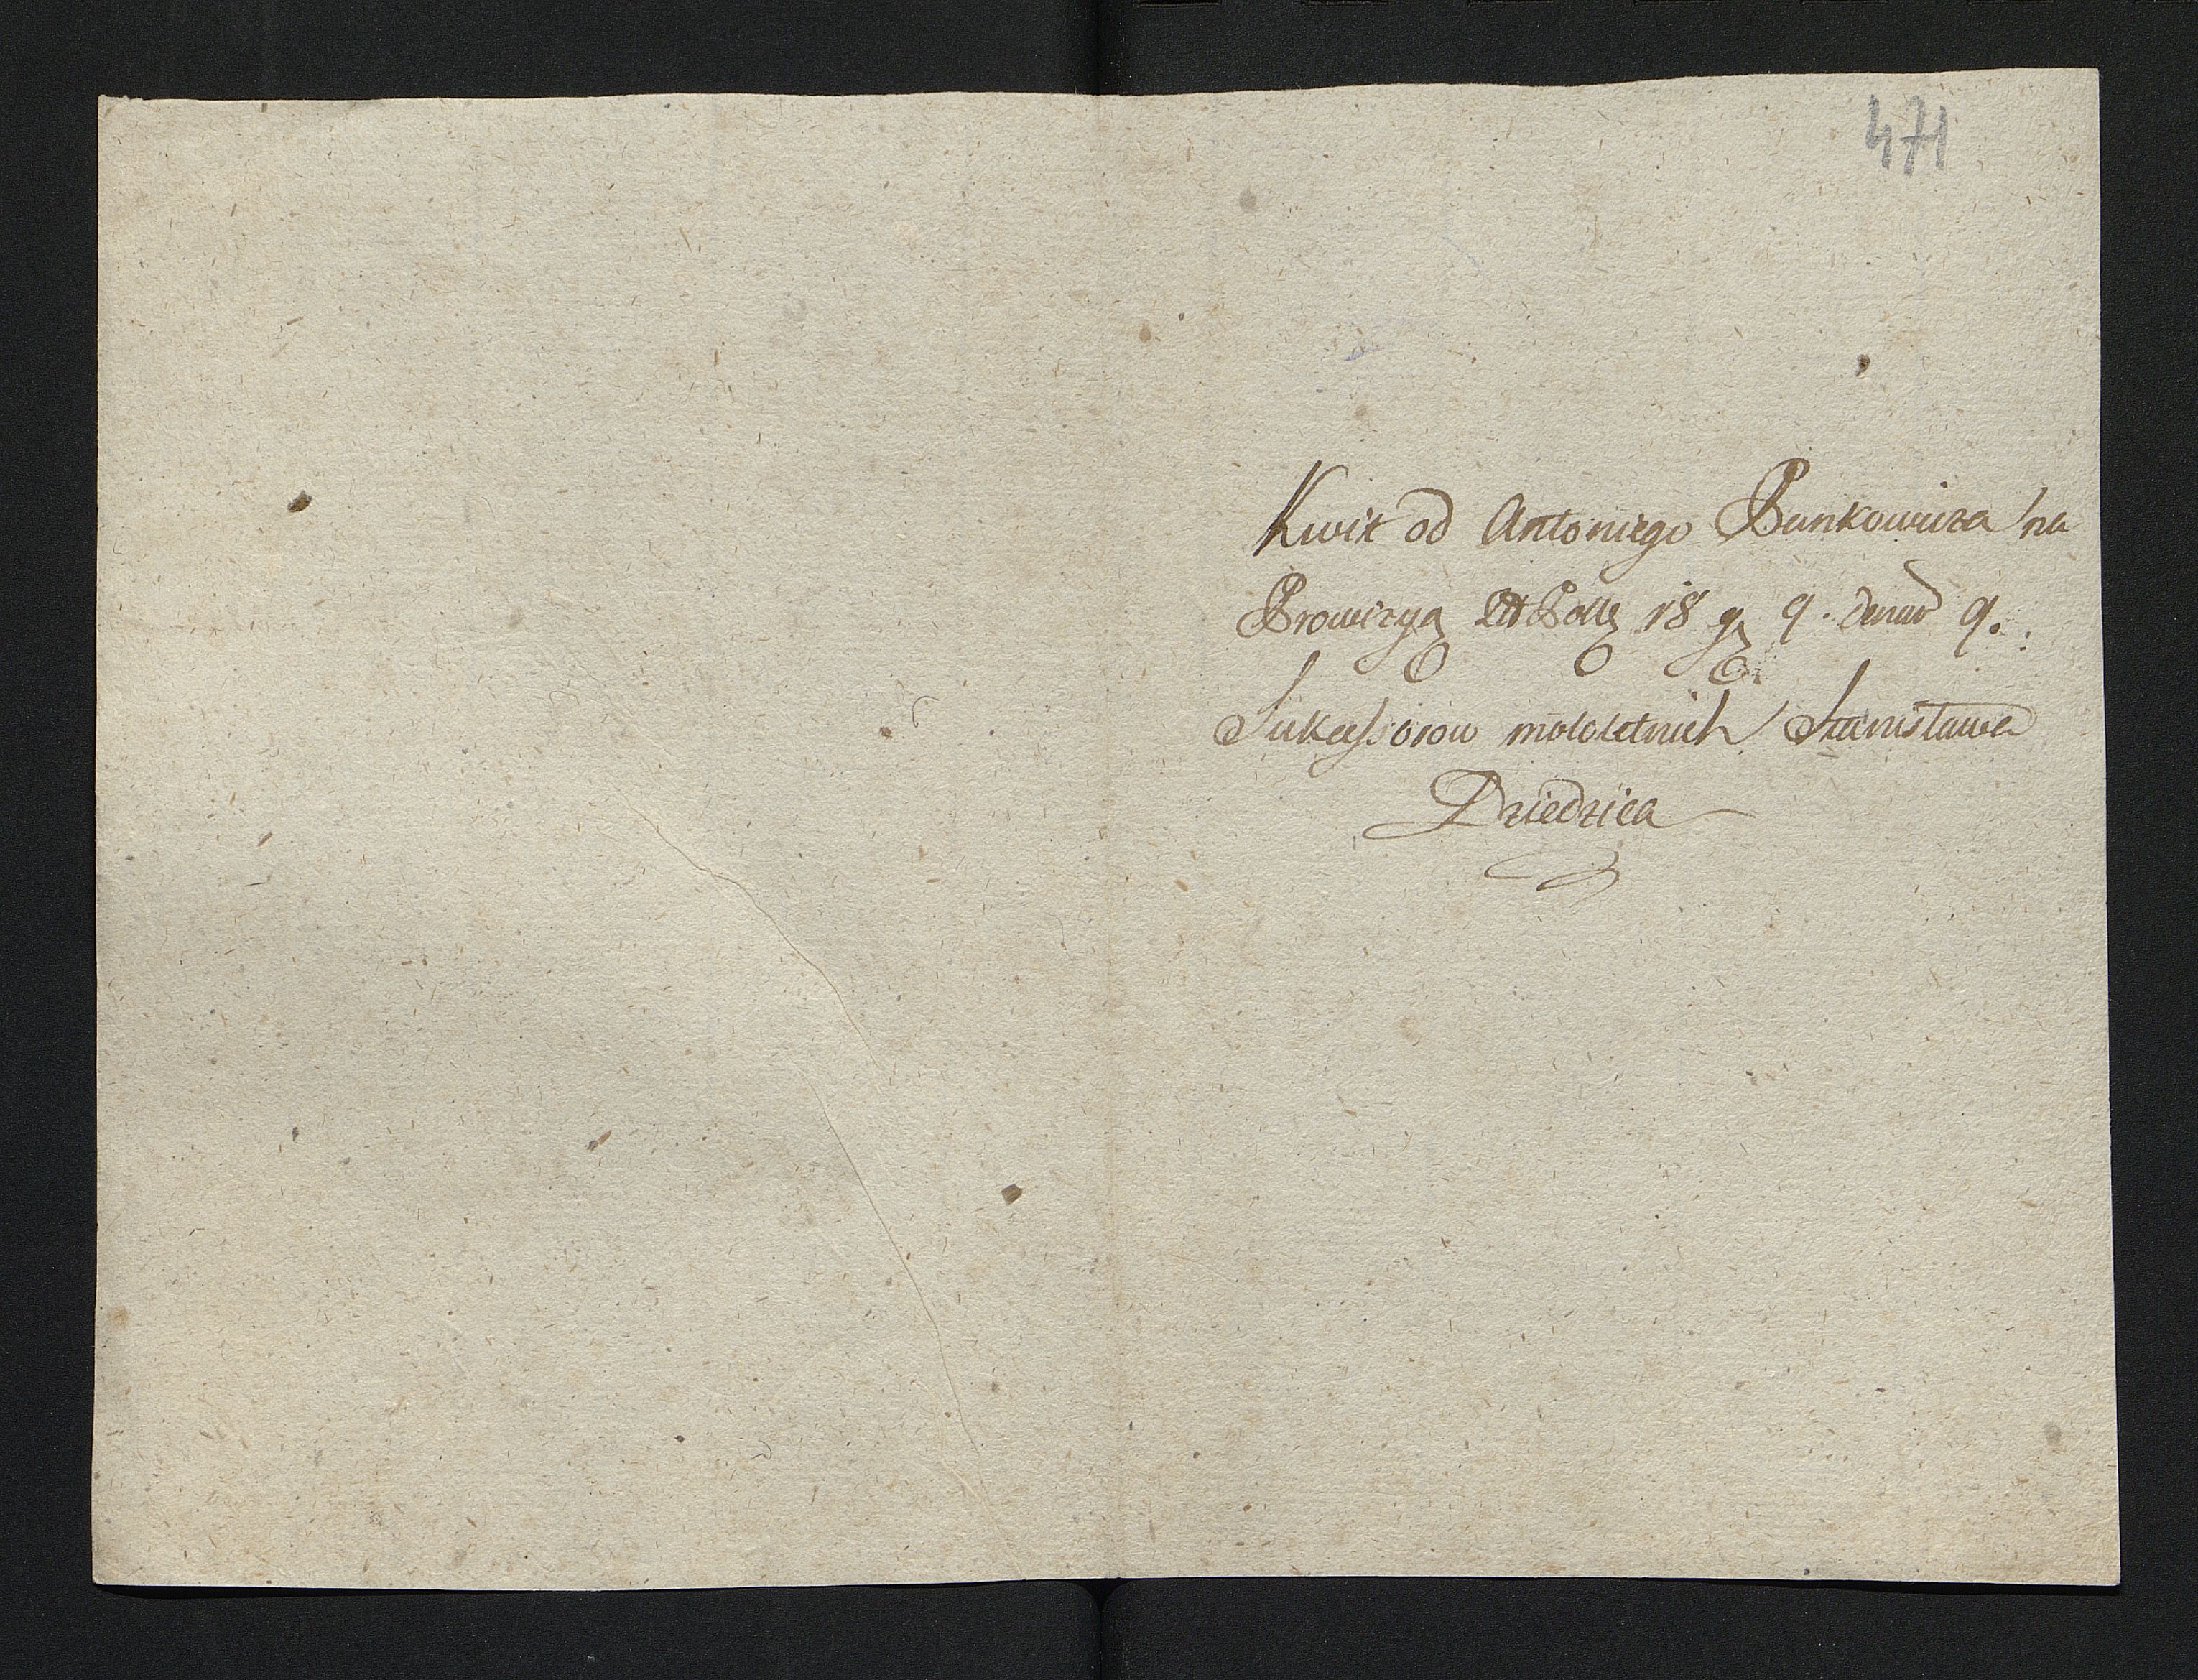 471
Kwit od Antoniego Bunkowicza na
Prowizyą 18 gr 9. denar 9.
Sukcessorow małoletnich Stanisława
Dziedzica